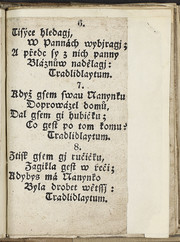 6.
Tisýce hledagj,
W Pannách wybjragj;
A přede sy z nich panny
Bláznůw nadělagj:
Tradlidlaytum.
7.
Když gsem swau Nanynku
Doprowázel domů,
Dal gsem gj hubičku;
Co gest po tom komu?
Tradlidlaytum.
8.
Ztiskl gsem gj ručičku,
Zagikla gest w řeči;
Kdybys má Nanynko
Byla drobet wětssj:
Tradlidlaytum.